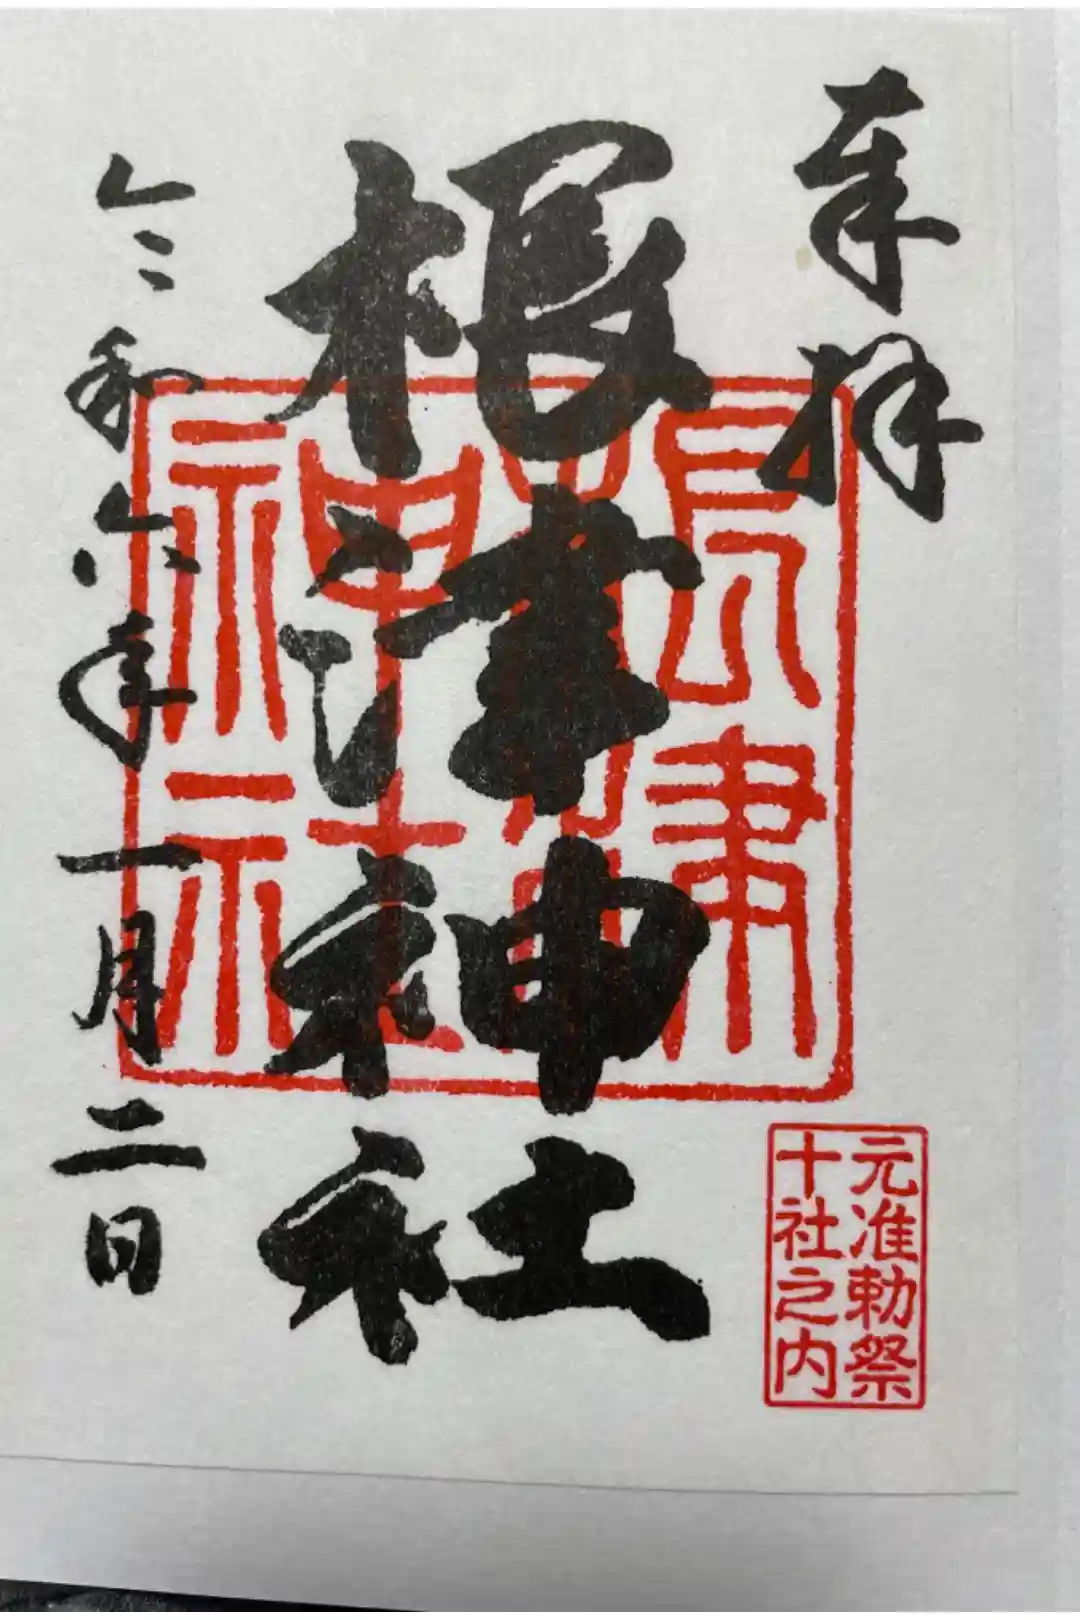 奉拝
根津神社
令和六年一月二日
元准勅祭
十社之内